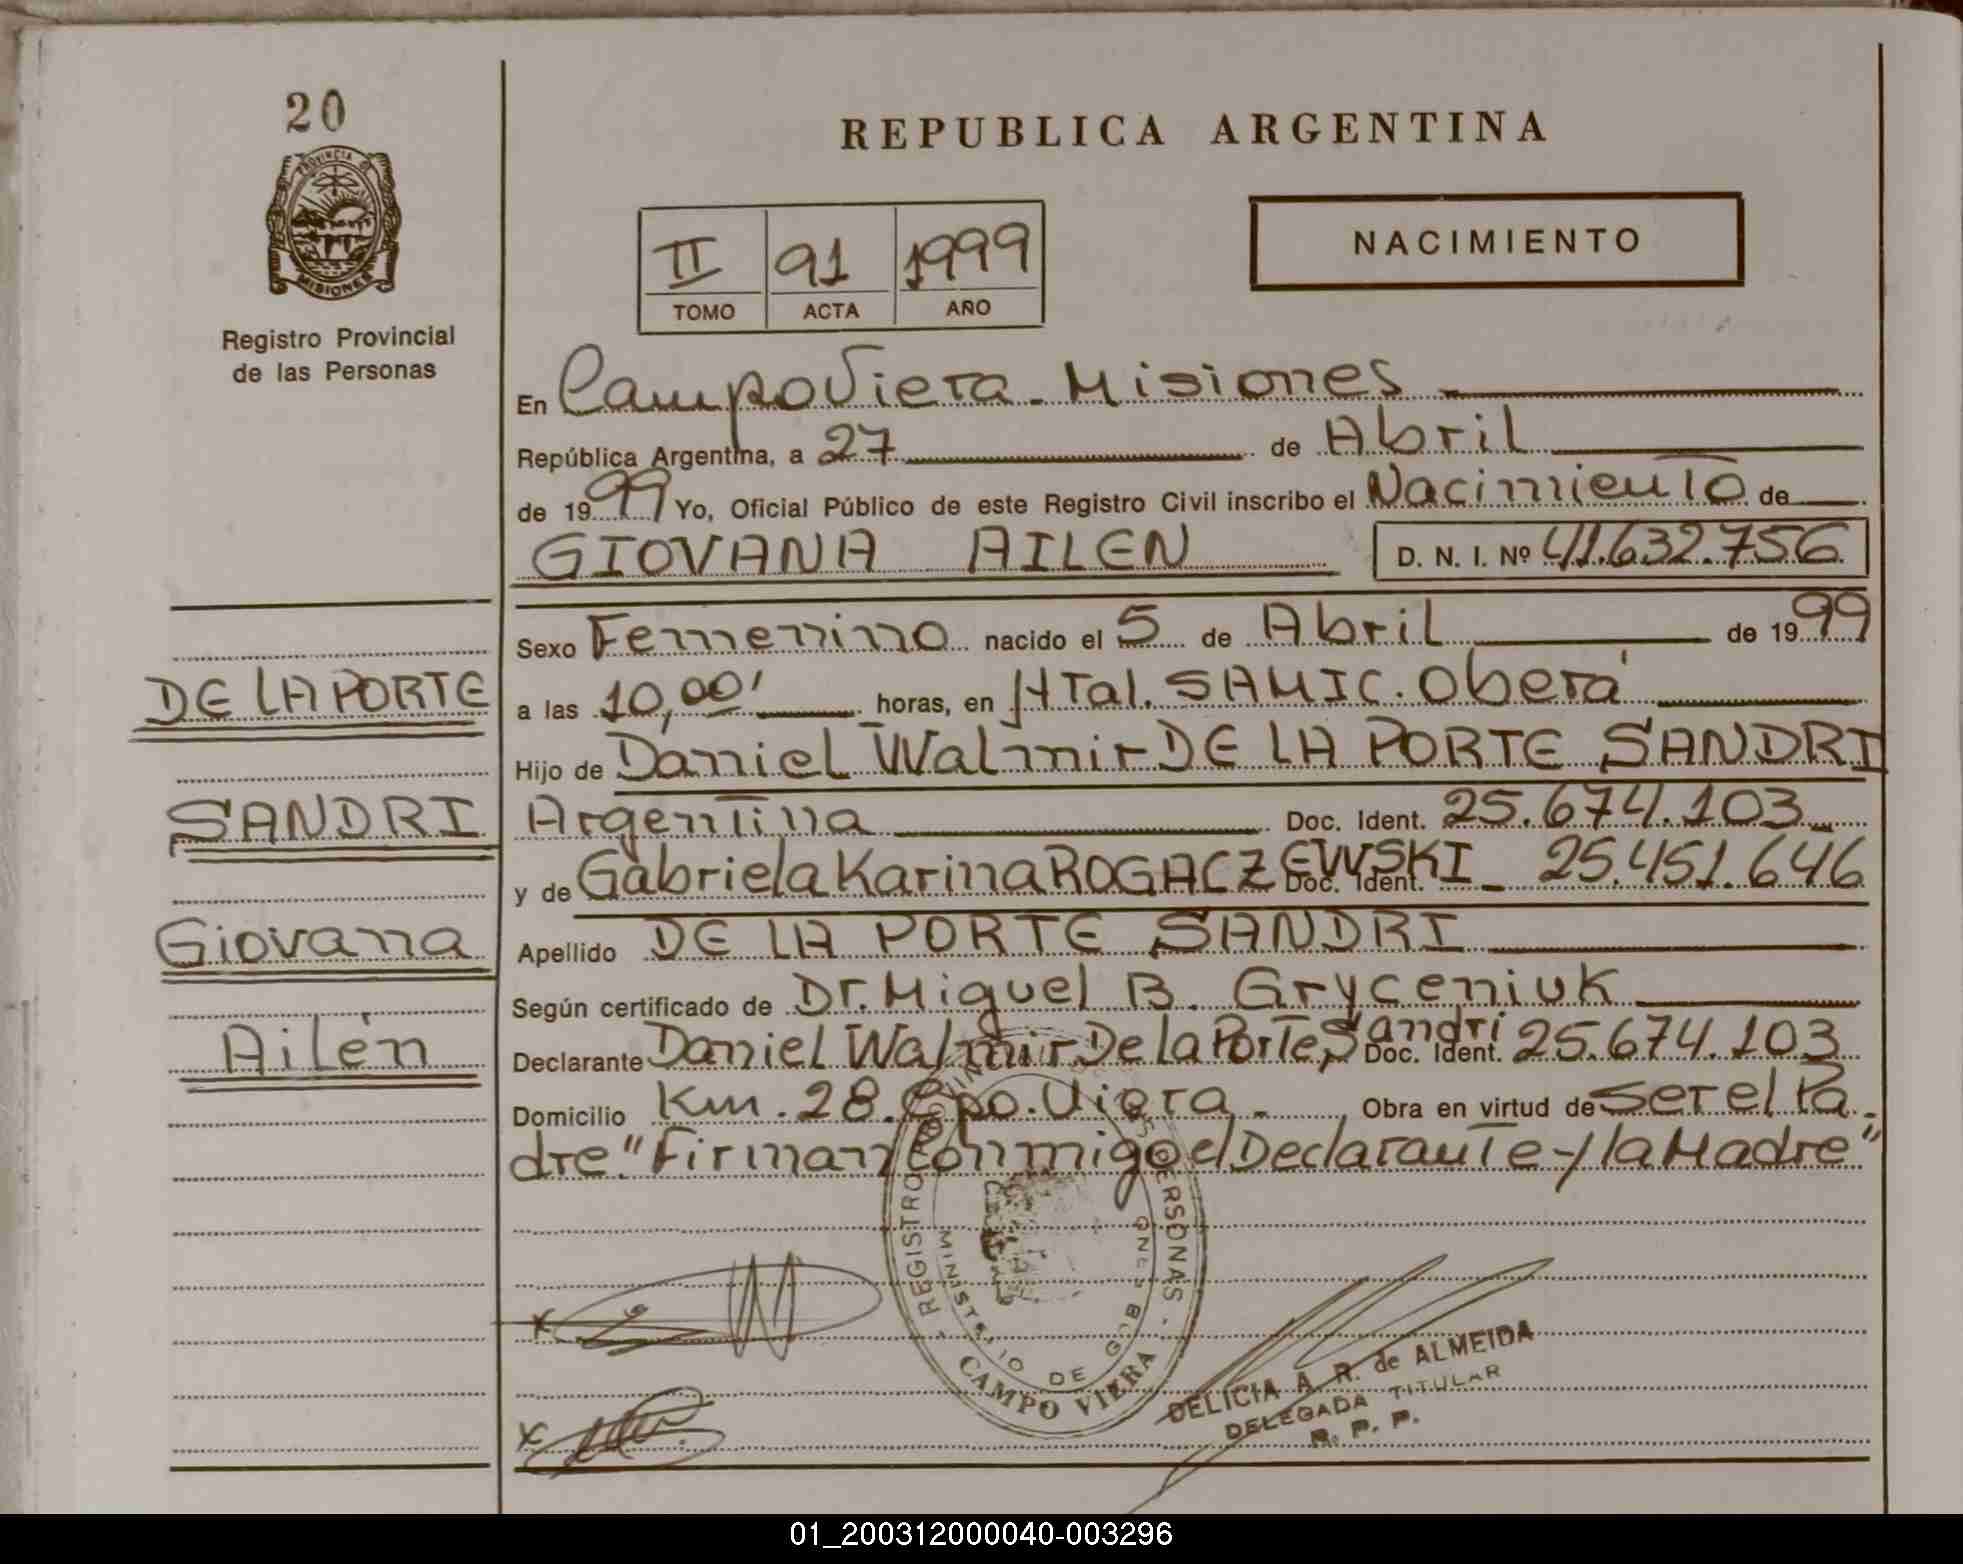 20
PROVINCIA DE
MISIONES
Registro Provincial
de las Personas
DE LA PORTE
SANDRI
Giovana
Ailén
REPUBLICA ARGENTINA
II 91 1999
TOMO ACTA AÑO
NACIMIENTO
En Campo Viera - Misiones
República Argentina, a 27 de Abril
de 1999 Yo, Oficial Público de este Registro Civil inscribo el Nacimiento de
GIOVANA AILEN D. N. I. Nº 41.632.756
Sexo Femenino nacido el 5 de Abril de 1999
a las 10,00' horas, en HTal. SAMIC. Oberá
Hijo de Daniel Walmir DE LA PORTE SANDRI
Argentina Doc. Ident. 25.674.103
y de Gabriela Karina ROGACZEWSKI Doc. Ident. 25.451.646
Apellido DE LA PORTE SANDRI
Según certificado de Dr. Miguel B. Gryceniuk
Declarante Daniel Walmir De la Porte Sandri Doc. Ident. 25.674.103
Domicilio Km. 28. Cpo. Viera - Obra en virtud de ser el Pa-
dre. "Firman Conmigo el Declarante y la Madre"
REGISTRO PERSONAS
MINISTERIO DE GOB
CAMPO VIERA
DELICIA A. R. de ALMEIDA
DELEGADA TITULAR
R. P. P.
01_200312000040-003296